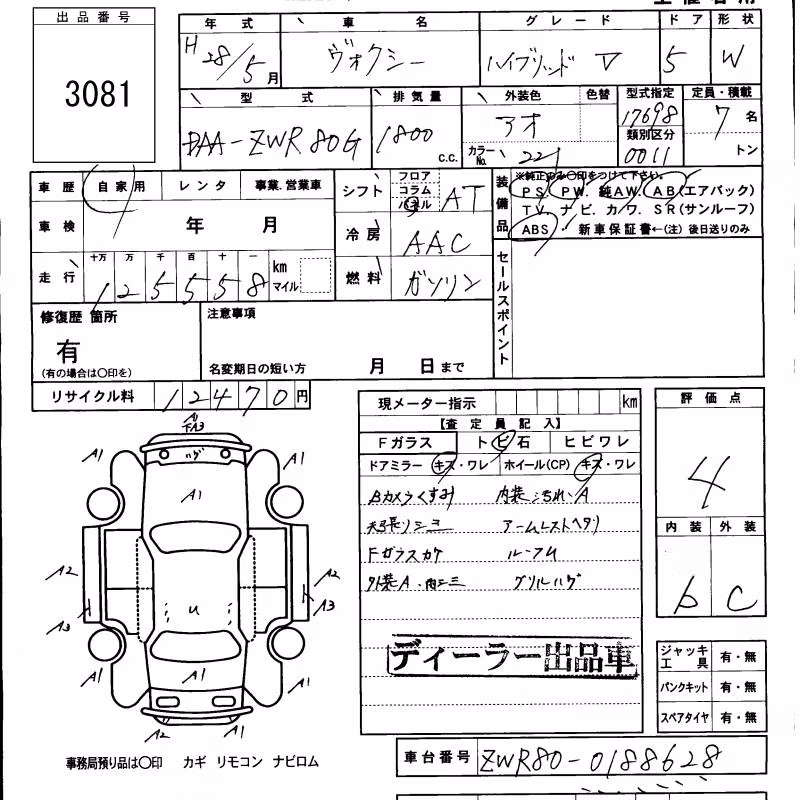 出品番号
3081
年式 車名 グレード ドア 形状
H28/5月 ヴォクシー ハイブリッド V 5 W
型式 排気量 外装色 色替 型式指定 定員・積載
DAA-ZWR80G 1800c.c. アオ 17698 7名
カラーNo. 221 類別区分 0011 トン
車歴 自家用 レンタ 事業.営業車
車検 年 月
走行 十万 万 千 百 十 一
125558 km マイル
シフト フロア コラム パネル AT
冷房 AAC
燃料 ガソリン
装備品 ※純正のみ〇印をつけて下さい。
PS. PW. 純AW. AB(エアバック)
TV. ナビ. カワ. SR(サンルーフ)
ABS 新車保証書←(注) 後日送りのみ
セールスポイント
修復歴 箇所
有
(有の場合は〇印を)
注意事項
名変期日の短い方 月 日まで
リサイクル料 12470円
現メーター指示 km
【査定員記入】
Fガラス トビ石 ヒビワレ
ドアミラー キズ・ワレ ホイール(CP) キズ・ワレ
Bカメラくすみ 内装汚れ、A
天張りシミ アームレストヘタリ
Fガラスカケ ルーフU
外装A.凹シミ グリルハゲ
ディーラー出品車
評価点
4
内装 外装
b C
ジャッキ工具 有・無
パンクキット 有・無
スペアタイヤ 有・無
A1 A1
ハゲ
A1
A1 A1
A2 A2
A3 A3
U
A1 A1 A1
A2 A1
事務局預り品は〇印 カギ リモコン ナビロム
車台番号 ZWR80-0188628